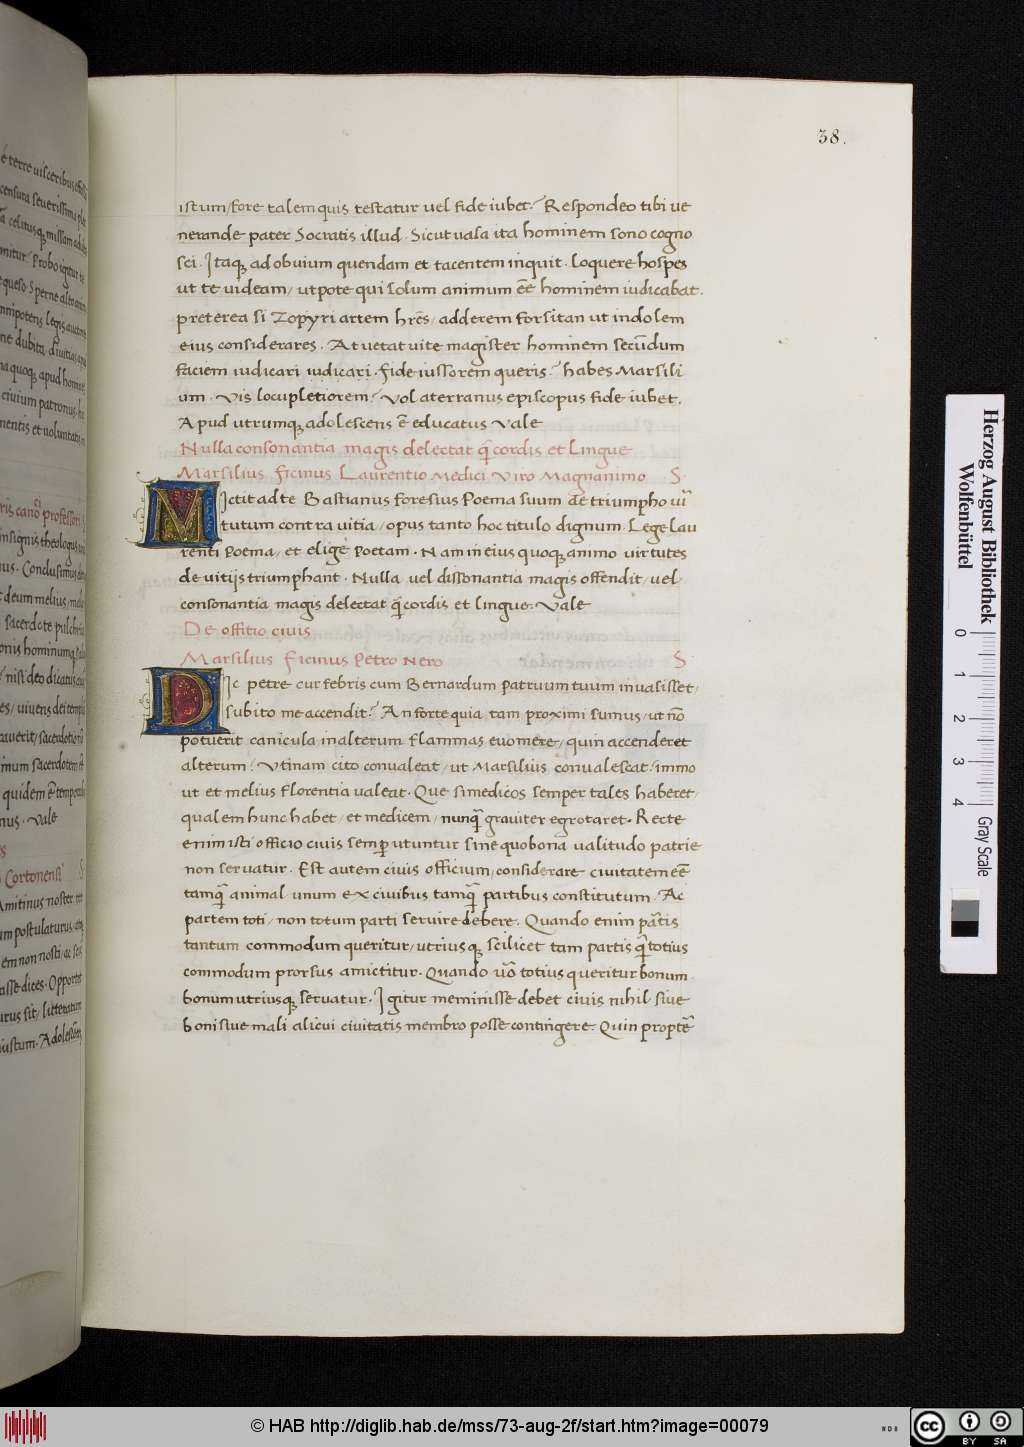 38.
istum/fore talem quis testatur uel fide iubet? Respondeo tibi ue
nerande pater Socratis illud. Sicut uasa ita hominem sono cogno
sci. Itaq; ad obuium quendam et tacentem inquit. loquere hospes
ut te uideam/ utpote qui solum animum eē hominem iudicabat.
preterea si Zopyri artem hrēs/ adderem forsitan ut indolem
eius considerares. At uetat uite magister hominem secūdum
faciem iudicari iudicari. fide iussorem queris? habes Marsili
um. Vis locupletiorem? Volaterranus episcopus fide iubet.
Apud utrumq; adolescens ē educatus Vale
Nulla consonantia magis delectat q̄ cordis et lingue
Marsilius ficinus Laurentio Medici Viro Magnanimo S.
Mictit ad te Bastianus foresius Poema suum de triumpho uir̄
tutum contra uitia/ opus tanto hoc titulo dignum. Lege Lau
renti Poema/ et elige Poetam. Nam in eius quoq; animo uirtutes
de uitijs triumphant. Nulla uel dissonantia magis offendit/ uel
consonantia magis delectat q̄ cordis et lingue. Vale
De offitio ciuis
Marsilius ficinus Petro Nero S.
Dic petre cur febris cum Bernardum patruum tuum inualisset/
subito me accendit? An forte quia tam proximi sumus/ ut nō
potuerit canicula in alterum flammas euomere/ quin accenderet
alterum? Vtinam cito conualeat/ ut Marsilius conualescat. immo
ut et melius florentia ualeat. Que si medicos semper tales haberet/
qualem hunc habet/ et medicem/ nunq̄ grauiter egrotaret. Recte
enim isti officio ciuis semp utuntur sine quo bona ualitudo patrie
non seruatur. Est autem ciuis officium/ considerare ciuitatem eē
tamq̄ animal unum ex ciuibus tamq̄ partibus constitutum. Ac
partem toti/ non totum parti seruire debere. Quando enim pātis
tantum commodum queritur/ utriusq; scilicet tam partis q̄ totius
commodum prorsus amictitur. Quando uō totius queritur bonum
bonum utriusq; seruatur. Igitur meminisse debet ciuis nihil siue
boni siue mali alicui ciuitatis membro posse contingere. Quin proptē
Herzog August Bibliothek
Wolfenbüttel
0 1 2 3 4 Gray Scale
© HAB http://diglib.hab.de/mss/73-aug-2f/start.htm?image=00079
cc BY SA